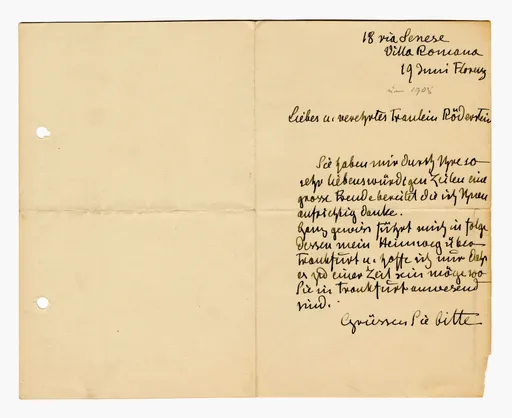 18 via Senese
Villa Romana
19 Juni Florenz
1908
Liebes u. verehrtes Fräulein Röderstein
Sie haben mir durch Ihre so
sehr liebenswürdigen Zeilen eine
grosse Freude bereitet die ich Ihnen
aufrichtig danke.
Ganz gewiss führt mich in folge
dessen mein Heimweg über
Frankfurt u. hoffe ich nur dass
es zu einer Zeit sein möge wo
Sie in Frankfurt anwesend
sind.
Grüssen Sie bitte